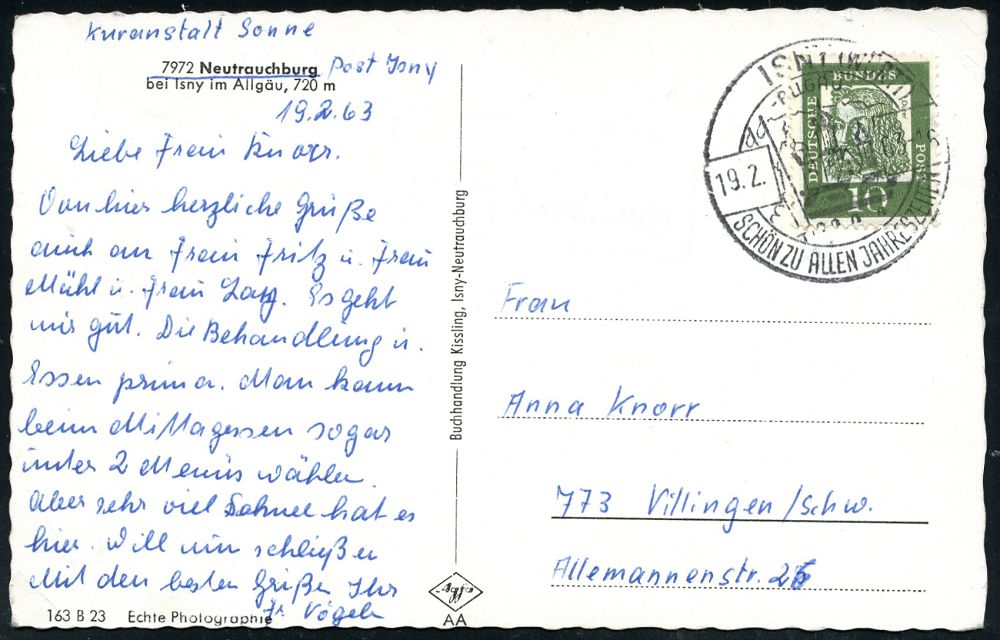 Kuranstalt Sonne
7972 Neutrauchburg Post Isny
bei Isny im Allgäu, 720 m
19.2.63
Liebe Frau Knorr.
Von hier herzliche Grüße
auch an Frau Fritz u. Frau
Mühl u. Frau
Es geht
mir gut. Die Behandlung u.
Essen prima. Man kann
beim Mittagessen sogar
unter 2 Menüs wählen.
Aber sehr viel Schnee hat es
hier. Will nun schließen
Mit den besten Grüßen Ihr
Fr. Vögele
163 B 23 Echte Photographie
Buchhandlung Kissling, Isny-Neutrauchburg
Agfa
AA
ISNY (WÜRTT)
19.2.
SCHÖN ZU ALLEN JAHRESZEITEN
DEUTSCHE BUNDESPOST
10
Frau
Anna Knorr
773 Villingen/Schw.
Allemannenstr. 26